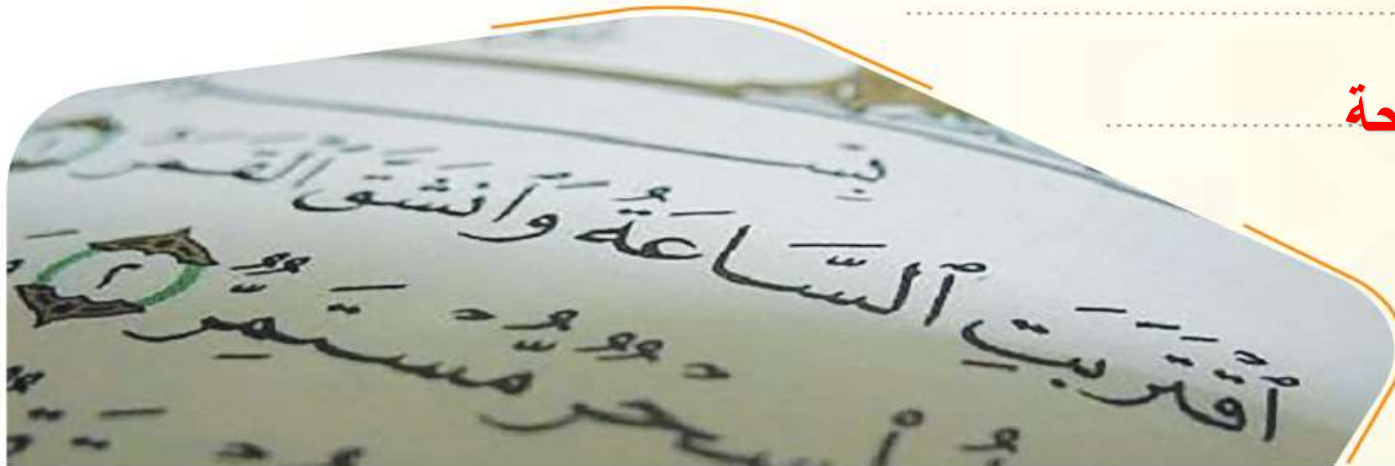 حة
بِسـ
ٱقْتَرَبَتِ ٱلسَّاعَةُ وَٱنشَقَّ ٱلْقَمَرُ ١
سِحْرٌ مُّسْتَمِرٌّ ٢